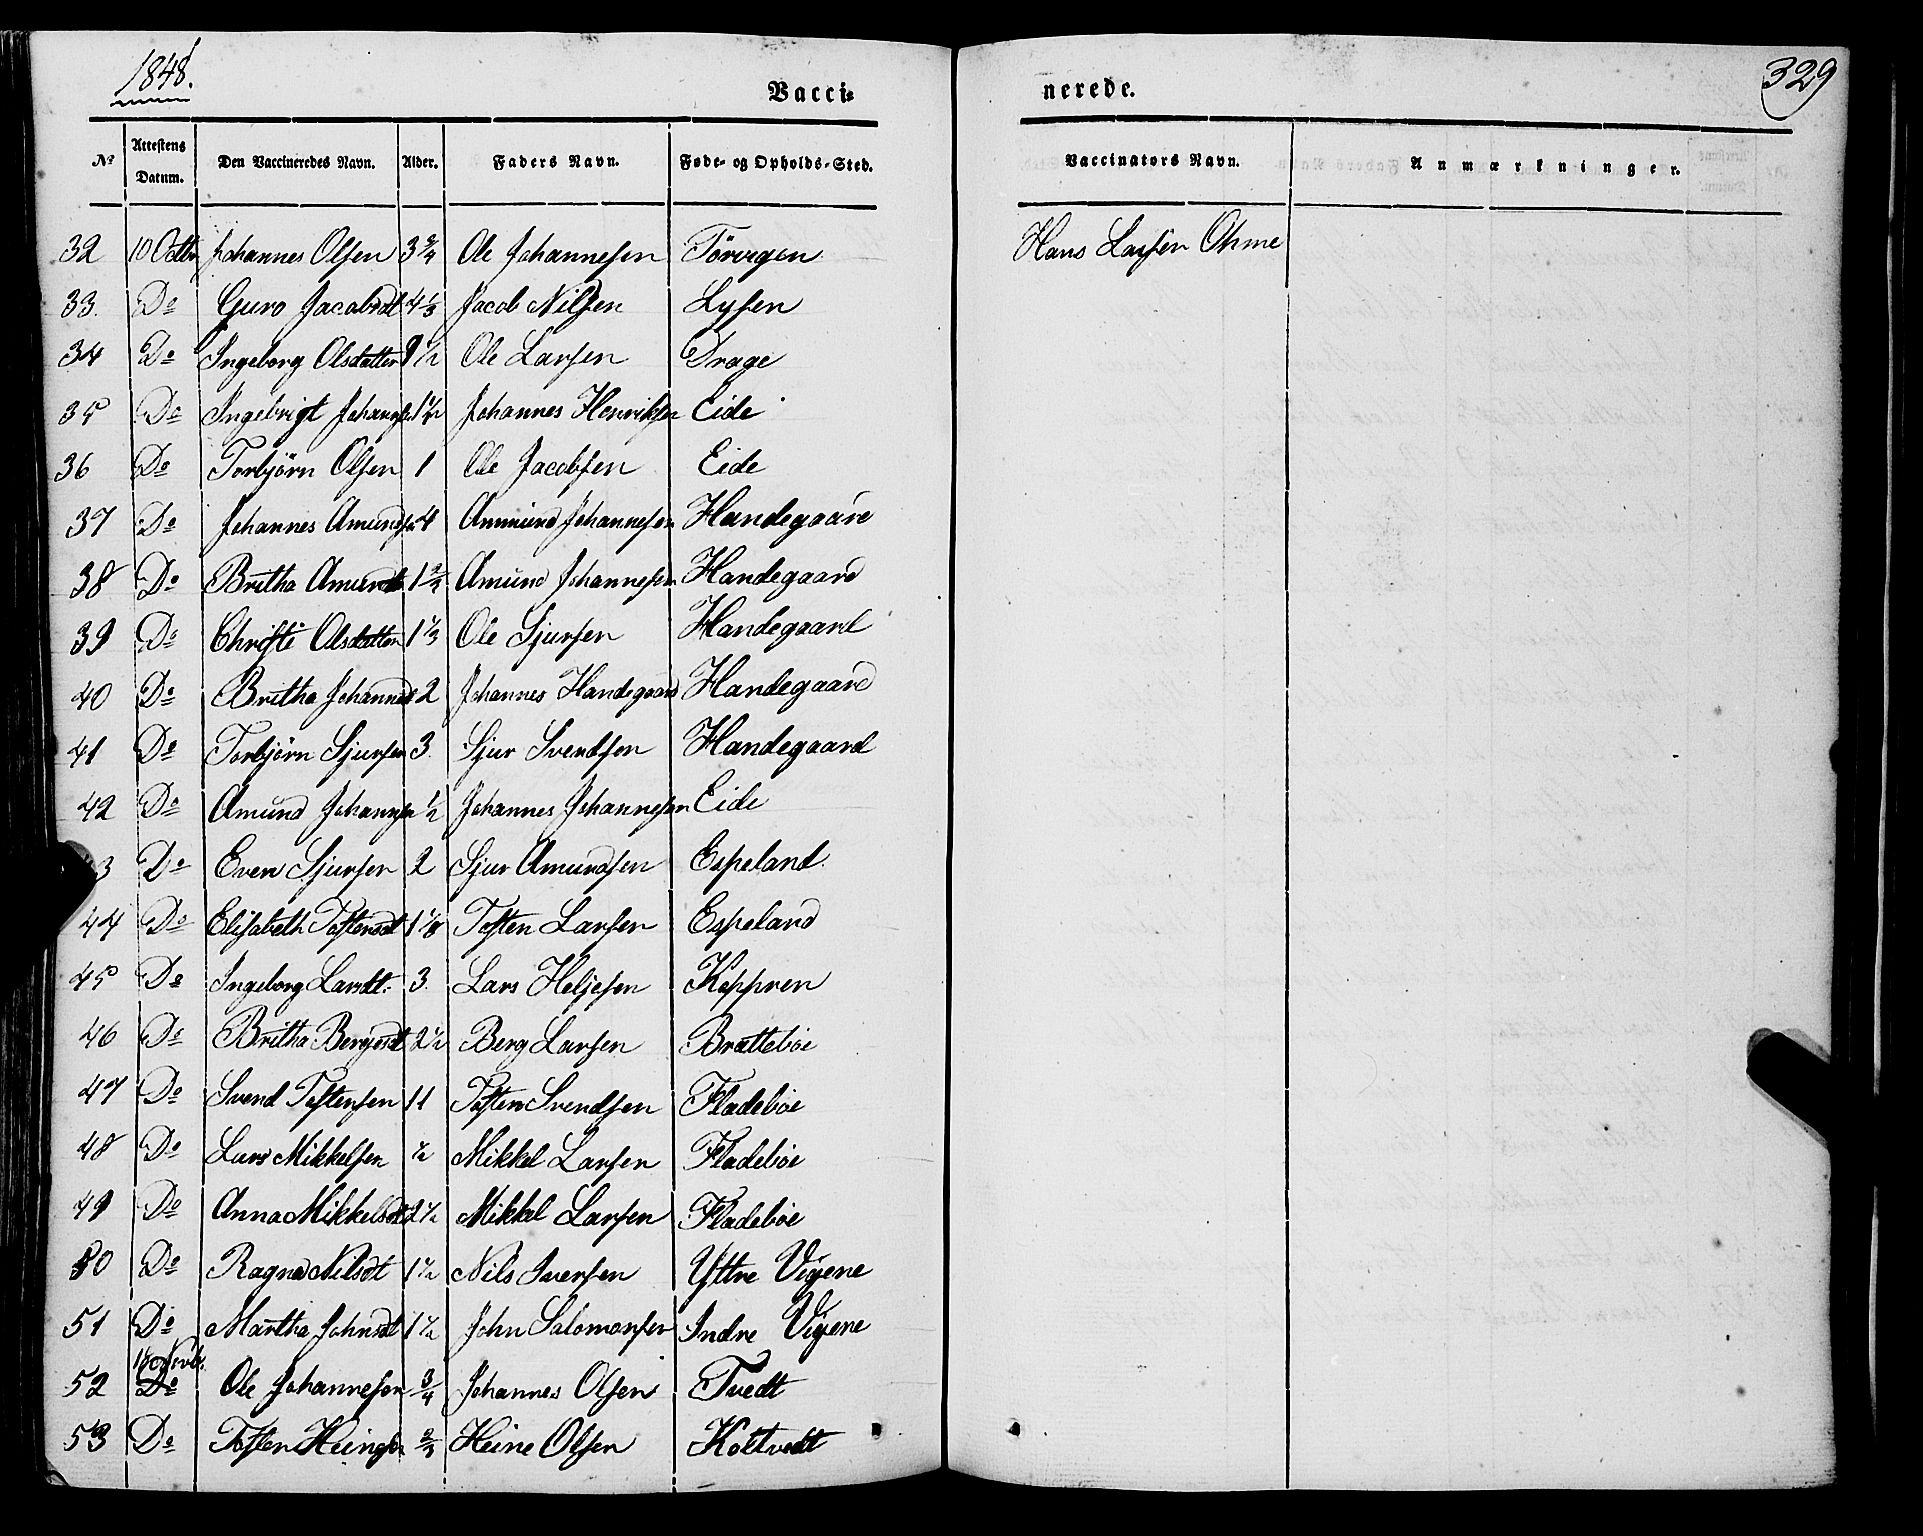 1848.
329
Vacci=
nerede.
No Attestens Datum. Den Vaccineredes Navn. Alder. Faders Navn. Føde- og Opholds-Sted. Vaccinators Navn. Anmærkninger.
32 10 Octbr Johannes Olsen 3 3/4 Ole Johannesen Tørvigen Hans Larsen Ohme
33. Do Guro Jacobsdt 4 1/3 Jacob Nilsen Lysen
34 Do Ingeborg Olsdatter 1/2 Ole Larsen Drage
35 Do Ingebrigt Johannesen Johannes Henriksen Eide
36 Do Torbjörn Olsen 1 Ole Jacobsen Eide
37 Do Johannes Amundsen 4 Ammund Johannesen Handegaard
38 Do Britha Amundsdt 1 Amund Johannesen Handegaard
39 Do Christi Olsdatter 1 1/3 Ole Sjursen Handegaard
40 Do Britha Johannesdt 2 Johannes Handegaard Handegaard
41 Do Torbjörn Sjursen 3. Sjur Svendsen Handegaard
42 Do Amund Johannsen 1/2 Johannes Johannesen Eide
3 Do Even Sjursen 2 Sjur Amundsen Espeland.
44 Do Elisabeth Tostensdt 1 1/8 Tosten Larsen Espeland
45 Do Ingeborg Larsdt. 3. Lars Heljesen Koppren
46 Do Britha Bergesdt 2 1/2 Berg Larsen Brattebøe
47 Do Svend Tostensen 11 Tosten Svendsen Fladebøe
48 Do Lars Mikkelsen 1/2 Mikkel Larsen Fladebøe
49 Do Anna Mikkelsdt 2 1/2 Mikkel Larsen Fladebøe
50 Do Ragna Nilsdt 1 1/2 Nils Iversen Yttre Vigene
51 Do Martha Johnsdt 1 1/2 John Salomonsen Indre Vigene
52 18 Novbr. Do Ole Johannesen 3/4 Johannes Olsen Tvedt
53 Do Tosten Heinesen 2/3 Heine Olsen Koltvedt